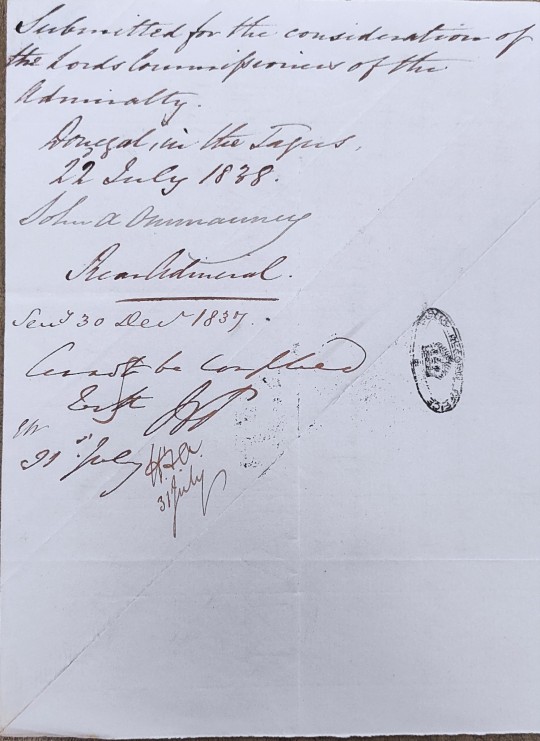 Submitted for the consideration of
the Lords Commissioners of the
Admiralty.
Donegal, in the Tagus,
22 July 1838.
John A Ommanney
Rear Admiral.
30 Decr 1837.
Cannot be complied
31st July
31 July
PUBLIC RECORD OFFICE